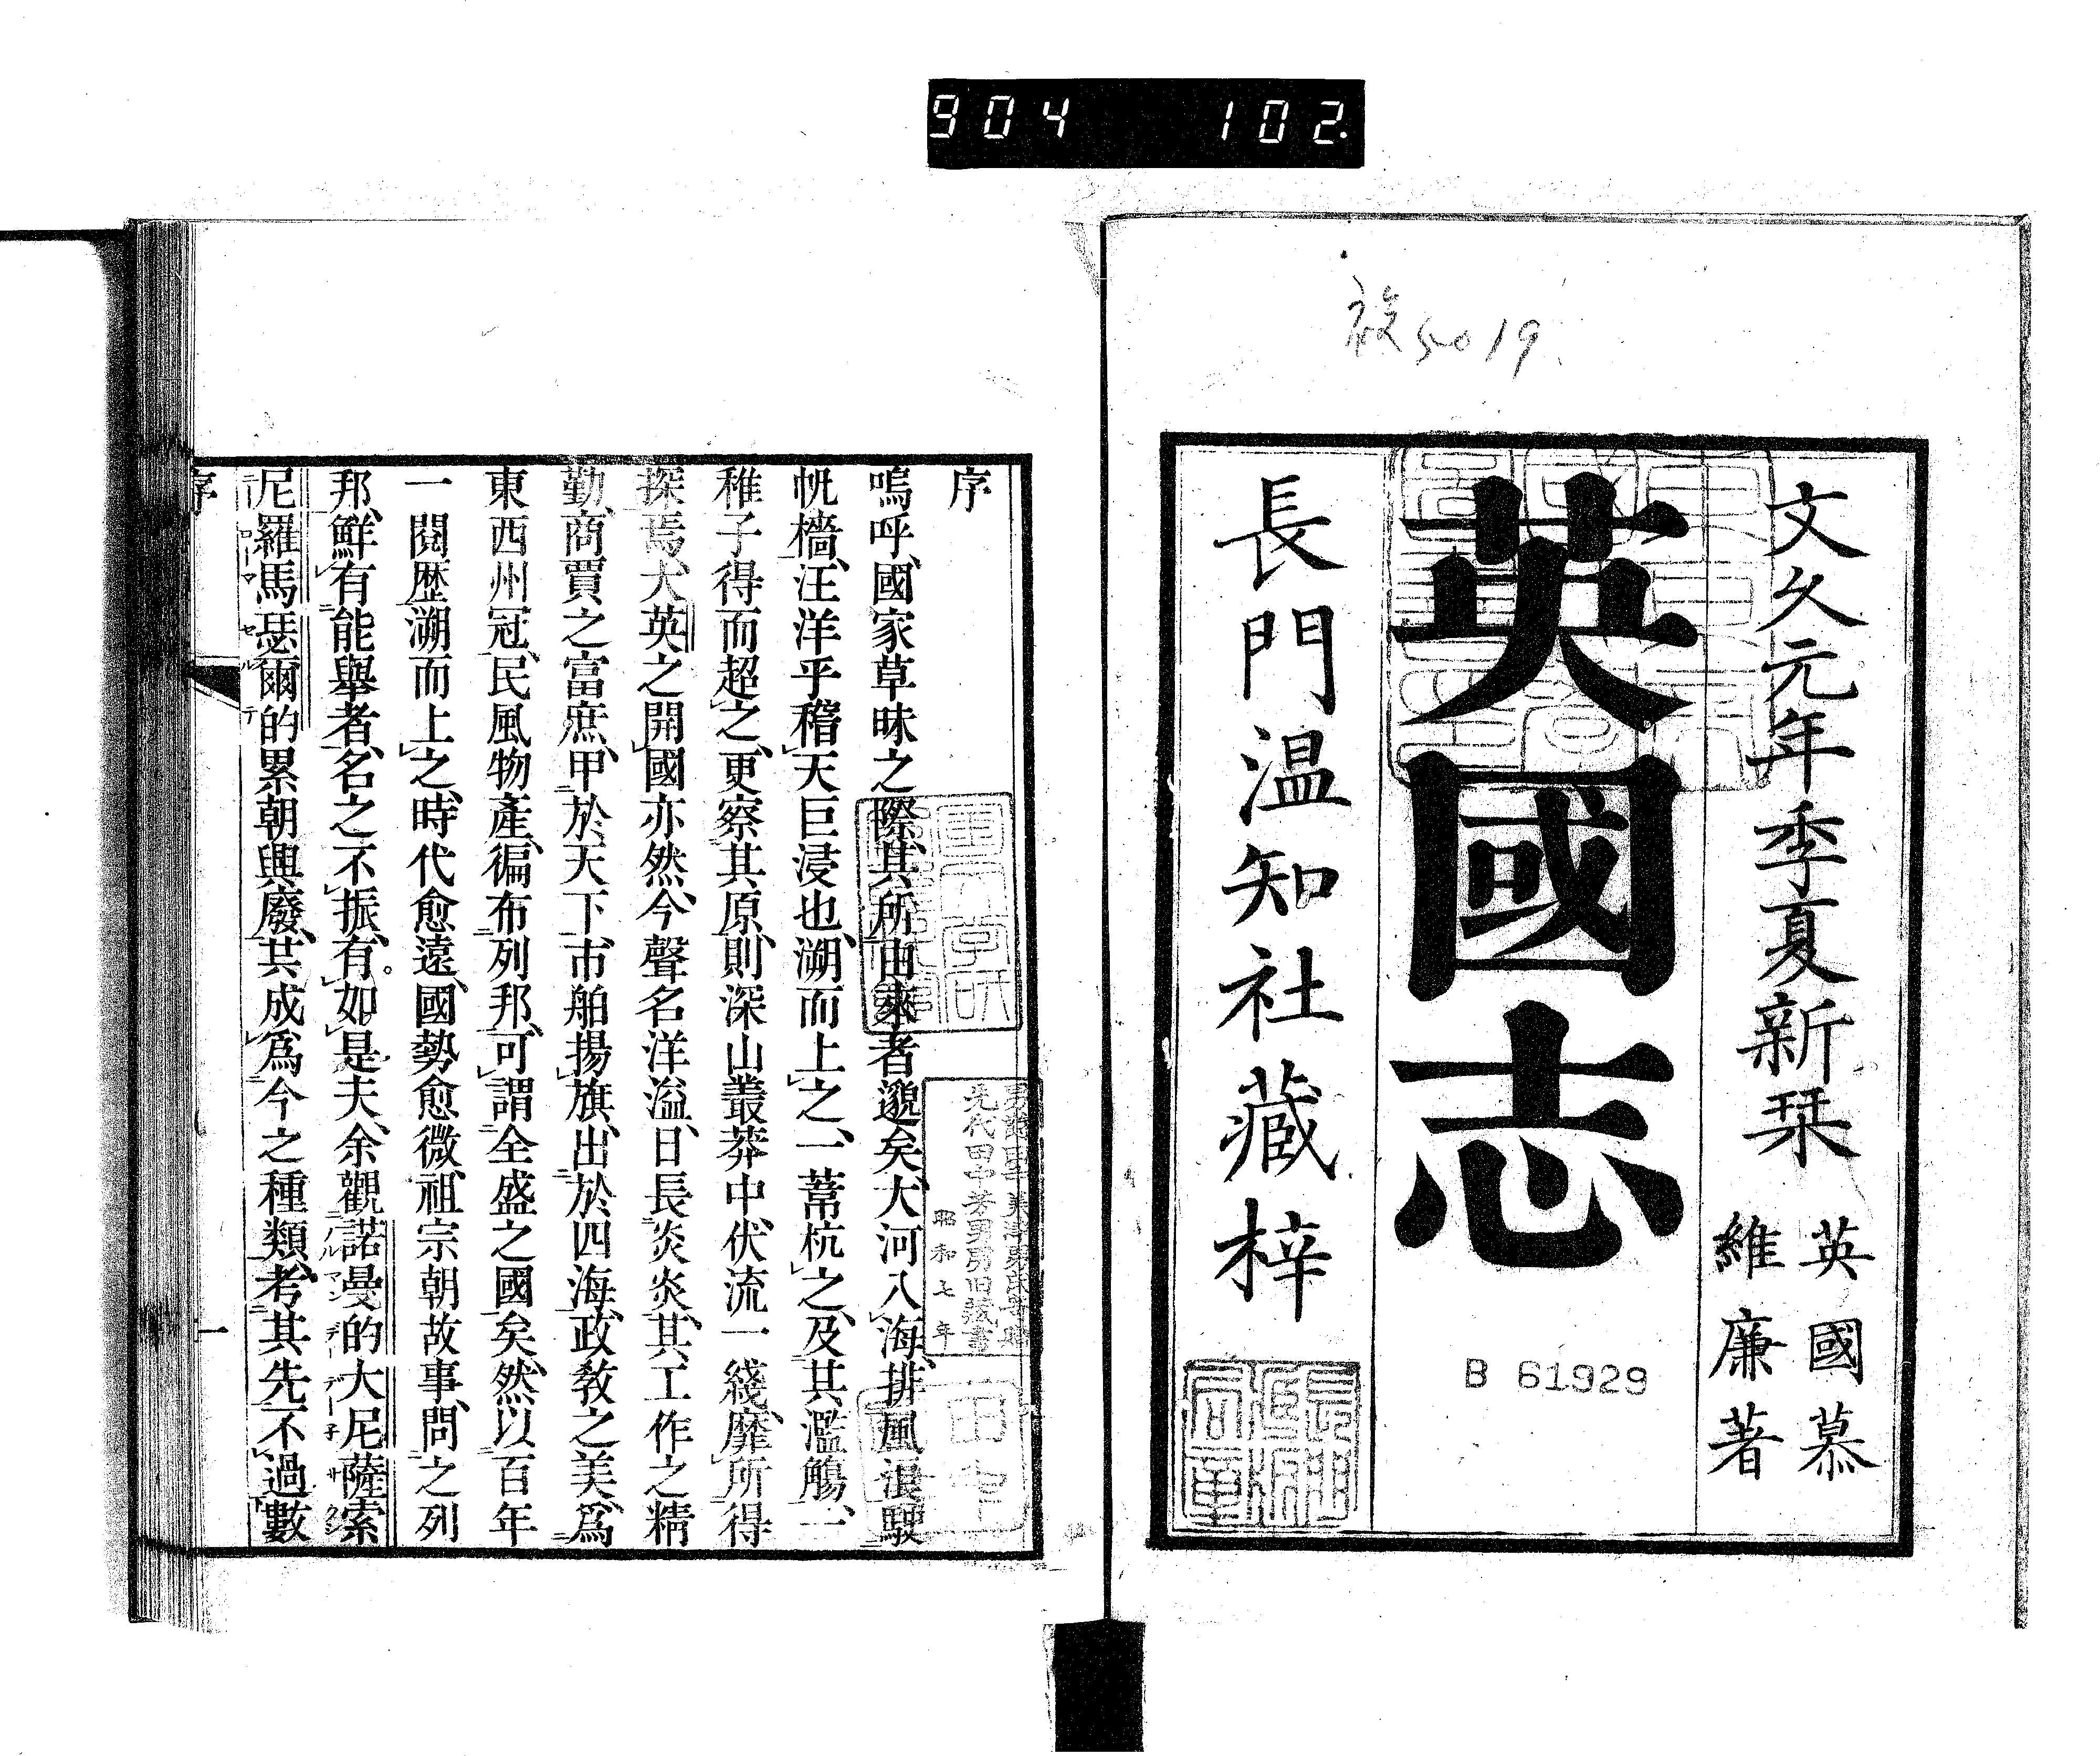 904 102.
5019
文久元年季夏新栞
英國慕
維廉著
英國志
B 61929
長門温知社藏梓
序
嗚呼、國家草昧之際、其所由來者邈矣、大河入海、排風浪駛
帆檣、汪洋乎稽天巨浸也、溯而上之、一葦杭之、及其濫觴、一
稚子得而超之、更察其原、則深山叢莽中、伏流一綫、靡所得
探焉、大英之開國亦然、今聲名洋溢、日長炎炎、其工作之精
勤、商賈之富庶、甲於天下、市舶揚旗、出於四海、政教之美、爲
東西州冠、民風物產、徧布列邦、可謂全盛之國矣、然以百年
一閱歷溯而上之、時代愈遠、國勢愈微、祖宗朝故事、問之列
邦、鮮有能舉者、名之不振、有如是夫、余觀諾曼的大尼薩索
尼羅馬瑟爾的累朝興廢、其成爲今之種類、考其先、不過數
ノルマンデー デー子 サクソ
ニ ローマ セルテ
昭和七年
田中
序
一